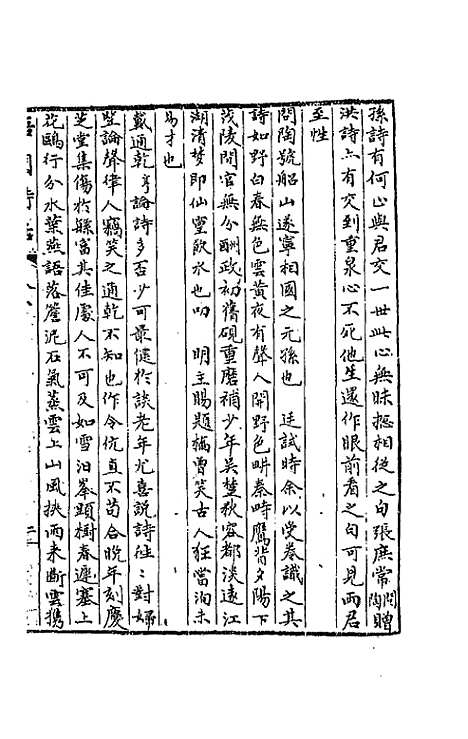 孫詩有何心與君交一世此心無昧摠相從之句張庶常問陶贈
洪詩亦有交到重泉心不死他生還作眼前看之句可見兩君
至性
問陶號船山遂寧相國之元孫也　廷試時余以受卷識之其
詩如野白春無色雲黃夜有聲人開野色耕秦時鷹背夕陽下
茂陵閒官無分酬政初舊硯重磨補少年吳楚秋容都淡遠江
湖清夢即仙靈飲水也叨　明主賜題橋曾笑古人狂當洵未
易才也
戴通乾亨論詩多否少可最健於談老年尤喜説詩往々對婦
豎論聲律人竊笑之通乾不知也作令伉直不苟合晚年刻慶
芝堂集傷於緐富其佳處人不可及如雪泊峯頭樹春遲塞上
花鷗行分水葉燕語落簷泥石氣蒸雲上山風挾雨來斷雲携
梧門詩話　卷八